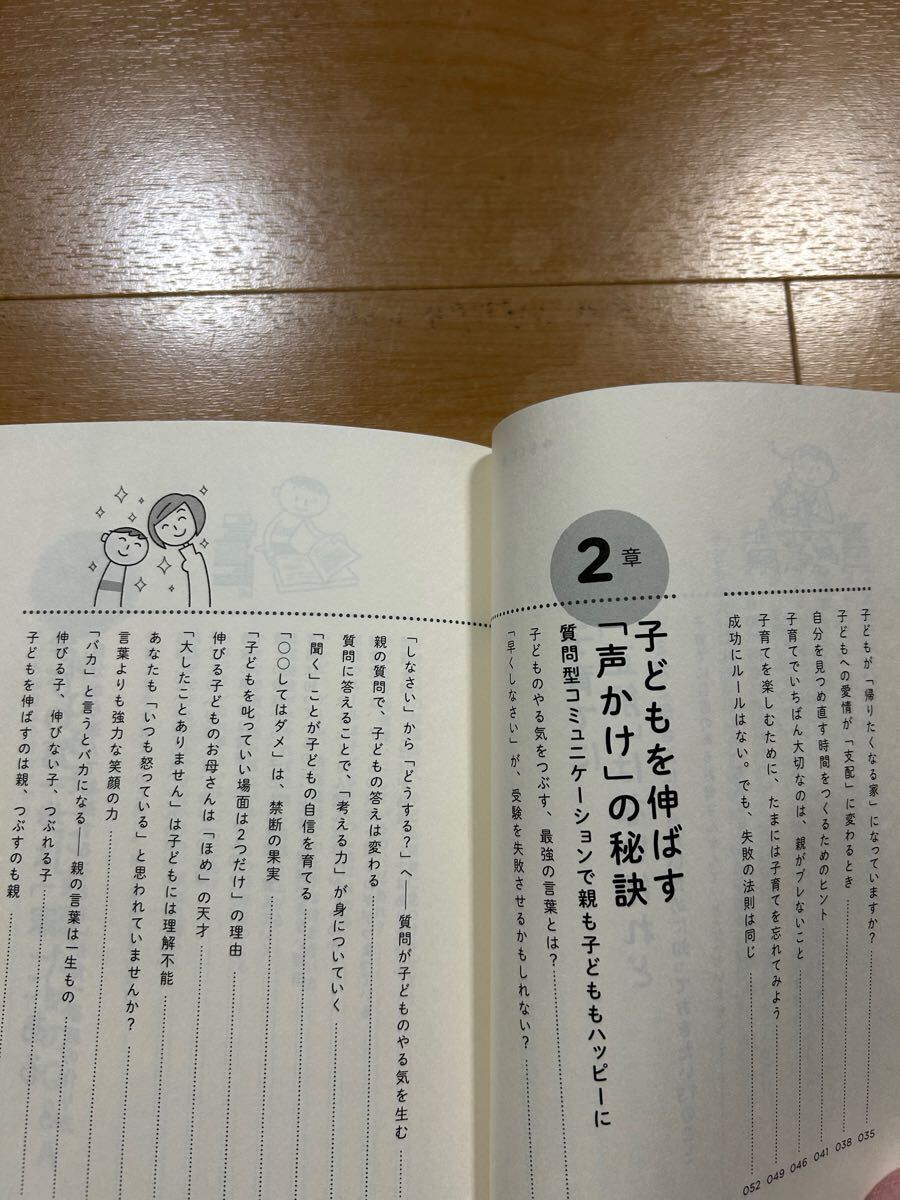 子どもが「帰りたくなる家」になっていますか？ 035
子どもへの愛情が「支配」に変わるとき 038
自分を見つめ直す時間をつくるためのヒント 041
子育てでいちばん大切なのは、親がブレないこと 046
子育てを楽しむために、たまには子育てを忘れてみよう 049
成功にルールはない。でも、失敗の法則は同じ 052
2章
子どもを伸ばす
「声かけ」の秘訣
質問型コミュニケーションで親も子どももハッピーに
子どものやる気をつぶす、最強の言葉とは？
「早くしなさい」が、受験を失敗させるかもしれない？
「しなさい」から「どうする？」へ——質問が子どものやる気を生む
親の質問で、子どもの答えは変わる
質問に答えることで、「考える力」が身についていく
「聞く」ことが子どもの自信を育てる
「○○してはダメ」は、禁断の果実
「子どもを叱っていい場面は2つだけ」の理由
伸びる子どものお母さんは「ほめ」の天才
「大したことありません」は子どもには理解不能
あなたも「いつも怒っている」と思われていませんか？
言葉よりも強力な笑顔の力
「バカ」と言うとバカになる——親の言葉は一生もの
伸びる子、伸びない子、つぶれる子
子どもを伸ばすのは親、つぶすのも親